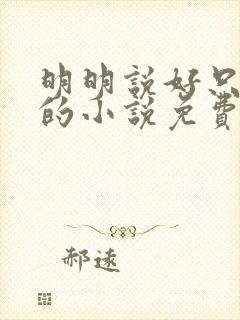 明明說好只
的小說免費
郝遠